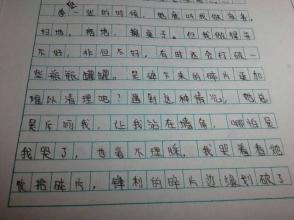 像一些的时候，她教叫我做家务，
扫地，拖地，擦桌子。但我做得并
不好，非但不好，有时还会打破一
些瓶瓶罐罐。是碎下来的碎片更加
难以清理吧？遇到这种情况，她总
是斥呵我，让我站在墙角，哪怕是
我哭了，也毫不理睬。我哭着看她
收拾碎片，锋利的碎片边缘划破了